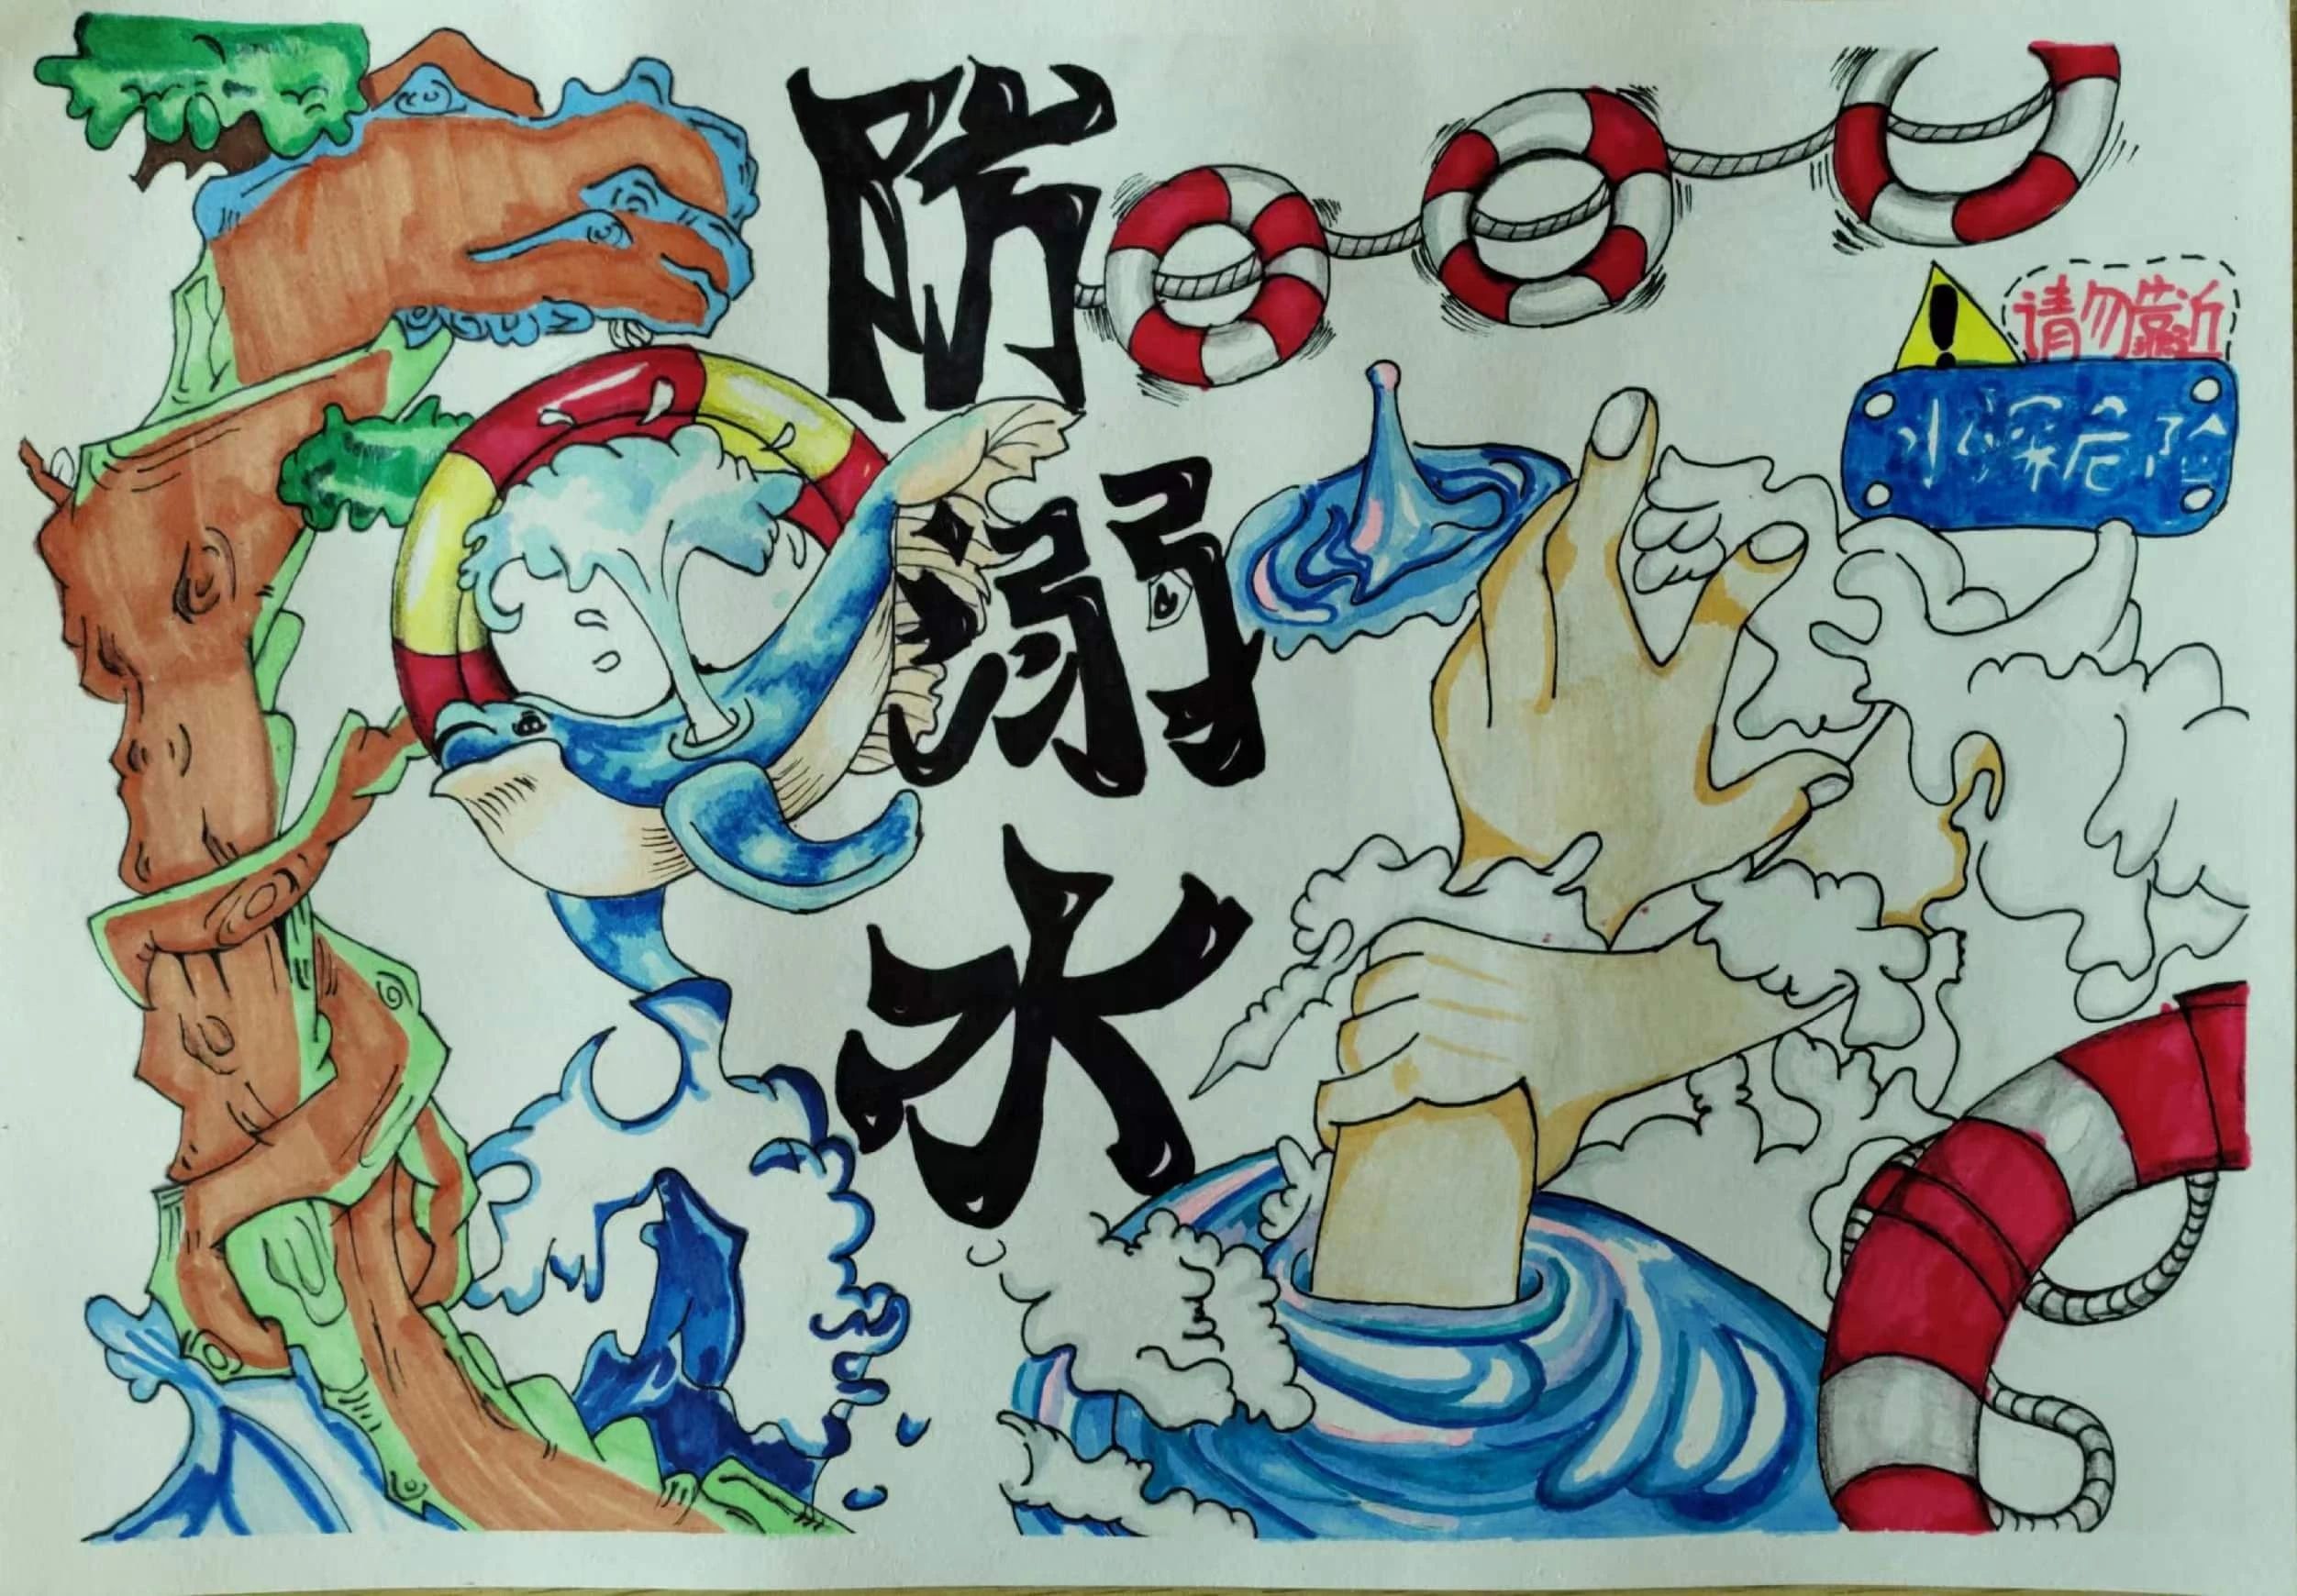 防溺水
请勿靠近
水深危险